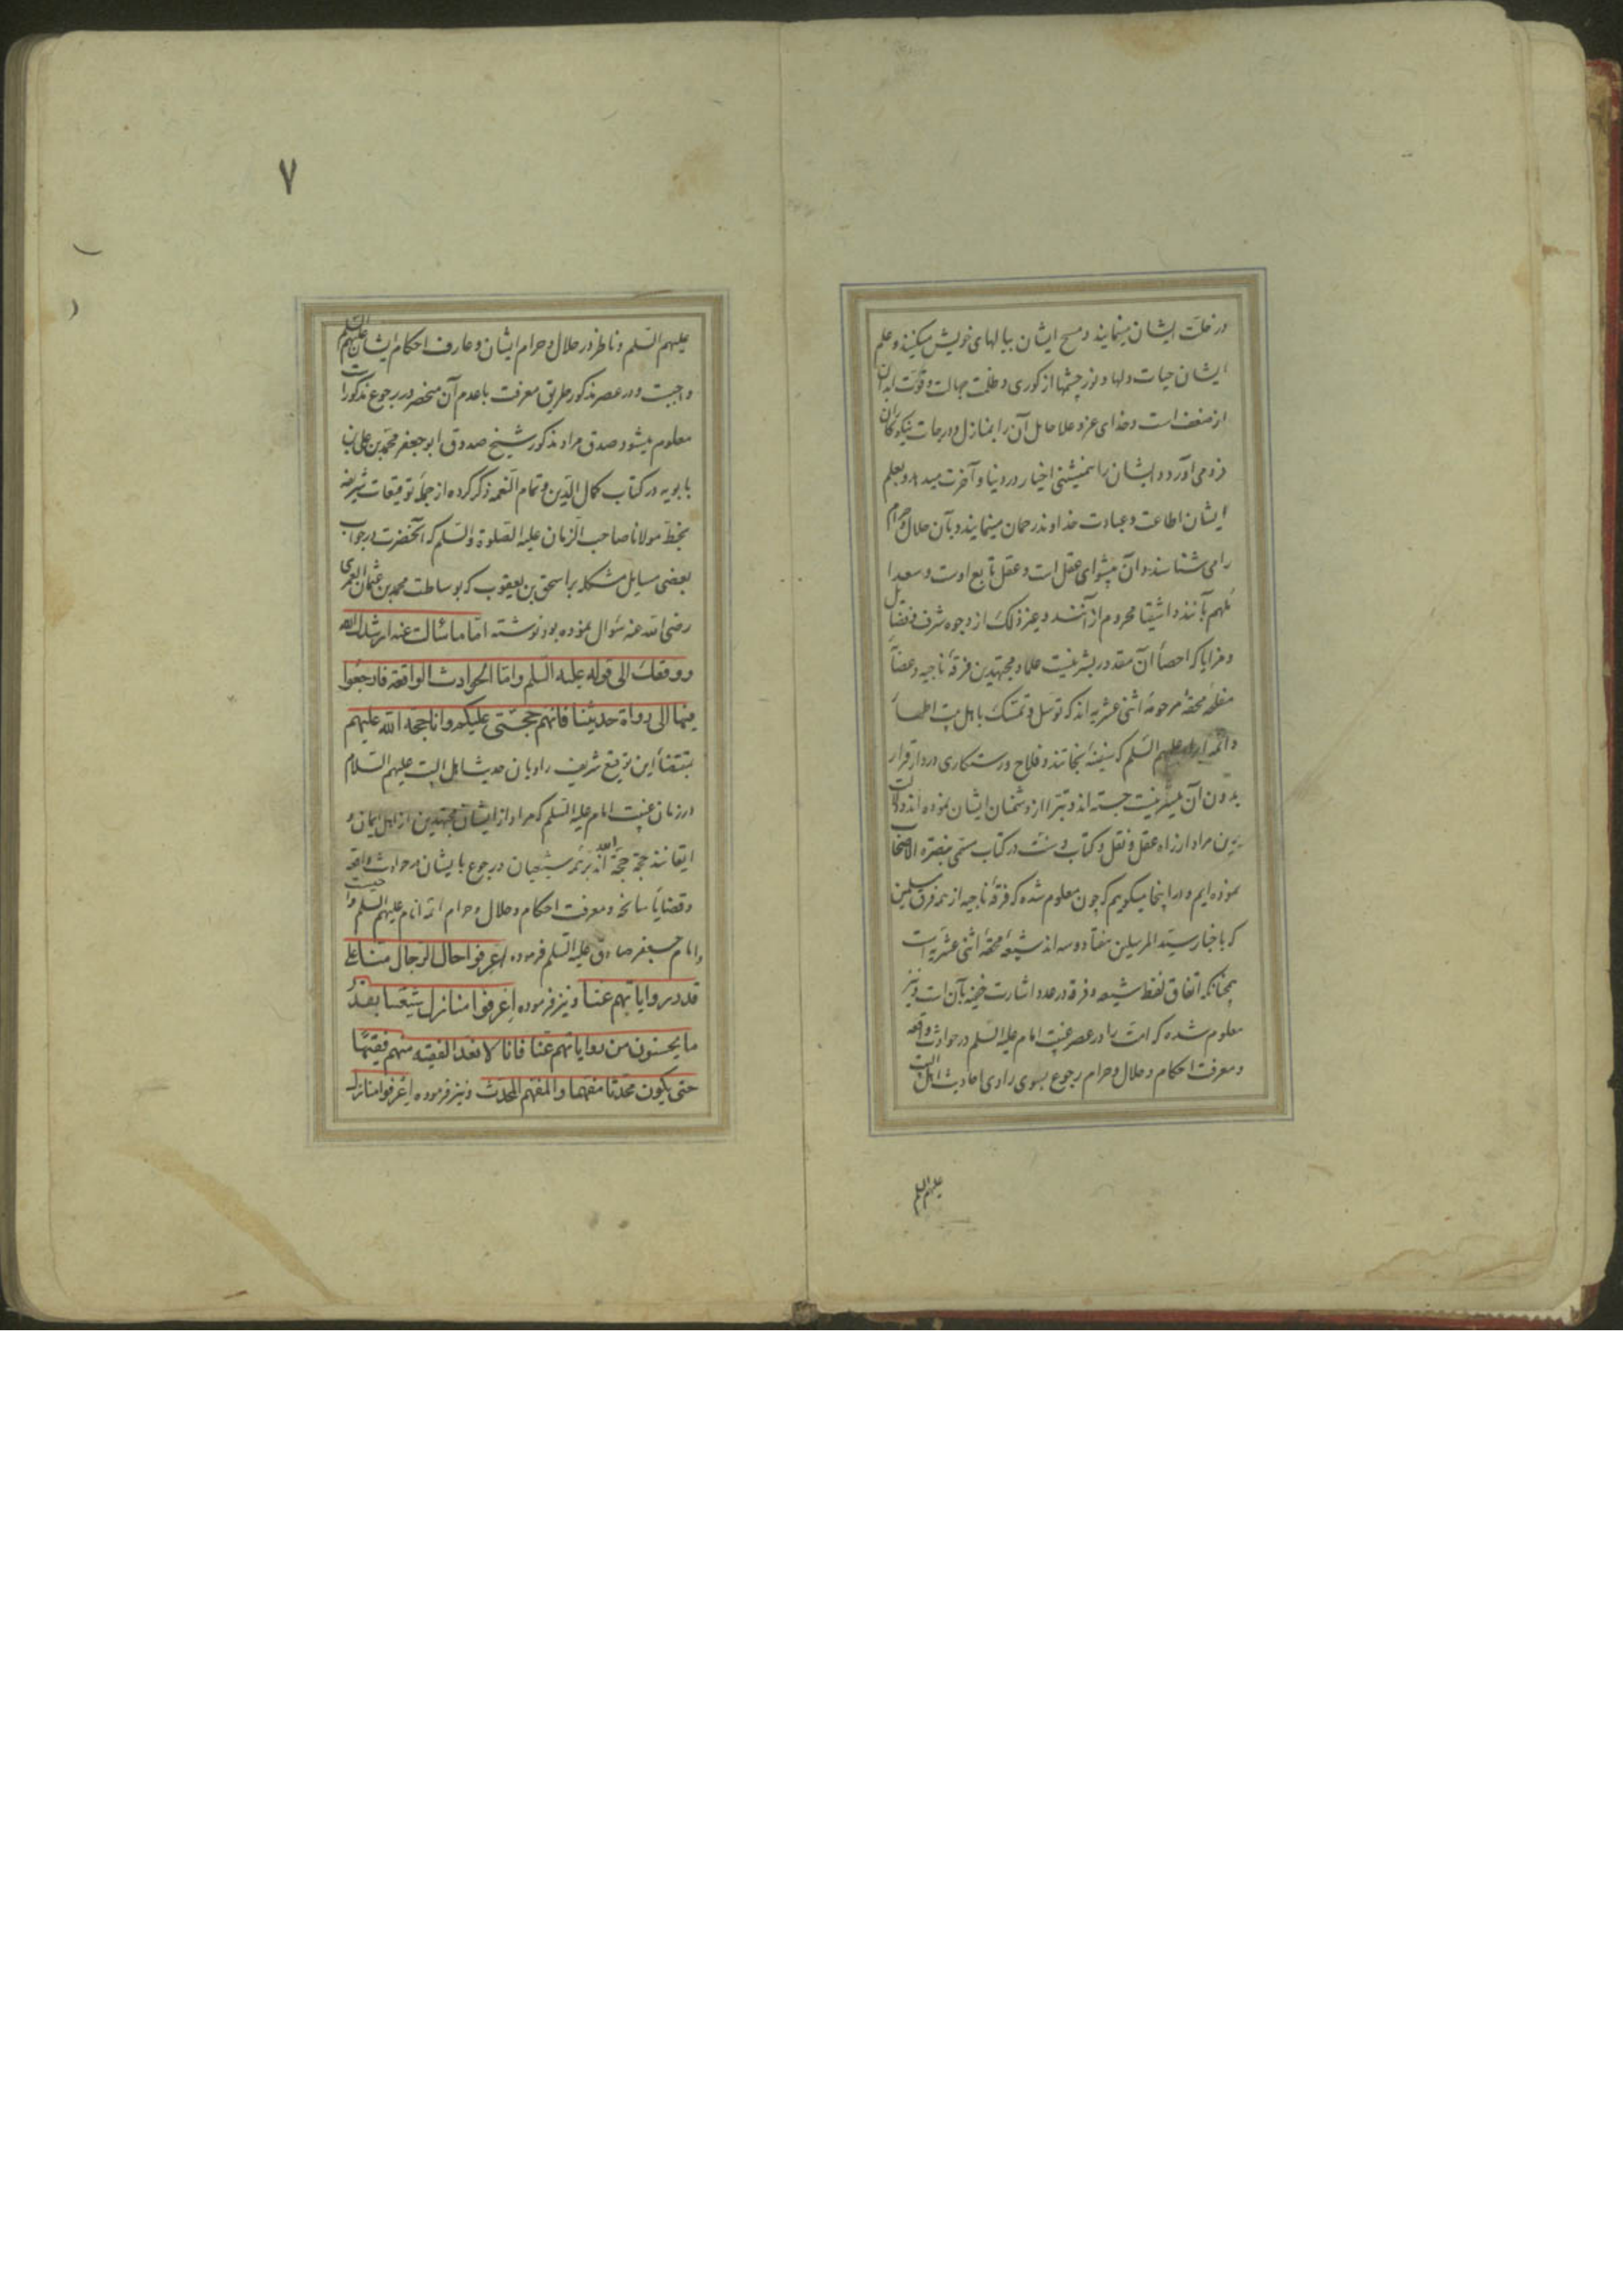 در خلّت ایشان مینمایند و مسح ایشان ببالهای خویش میکنند و علم
ایشان حیات دلها و نور چشمها از کوری و ظلمت جهالت و قوّت ابدان
از ضعف است و خدای عز و علا حامل آن را بمنازل و درجات نیکوکاران
فرو می آورد و ایشان را همنشینی اخیار در دنیا و آخرت میدهد و بعلم
ایشان اطاعت و عبادت خداوند رحمان مینمایند و بآن حلال و حرام
را می شناسند و آن پیشوای عقل است و عقل تابع اوست و سعدا
ملهم بآنند و اشقیا محروم از آنند و غیر ذلک از وجوه شرف و فضایل
و مزایا که احصاء آن مقدور بشر نیست علما و مجتهدین فرقهٔ ناجیه
محقهٔ مرحومهٔ اثنی عشریه اند که توسل و تمسک باهل بیت اطهار
و ائمه ابرار علیهم السّلم که سفینهٔ نجاتند و فلاح و رستکاری در دار قرار
بدون آن میسّر نیست جسته اند و تبرّا از دشمنان ایشان نموده اند و دلالت
برین مراد از راه عقل و نقل و کتاب و سنت در کتاب مسمّی
نموده ایم و در اینجا میکوییم که چون معلوم شده که فرقهٔ ناجیه از همه فرق مسلمین
که باخبار سیّد المرسلین هفتاد و سه اند شیعهٔ محقهٔ اثنی عشریه است
چنانکه اتفاق لفظ شیعه و فرقه در عدد اشارت خفیّه بآن است و نیز
معلوم شده که امت را در عصر غیبت امام علیه السّلم در حوادث واقعه
و معرفت احکام و حلال و حرام رجوع بسوی راوی احادیث اهل البیت
علیهم السلم
۷
علیهم السّلم و ناظر در حلال و حرام ایشان و عارف احکام ایشان علیهم السّلم
واجبست و در عصر مذکور طریق معرفت باعدم آن منحصر در رجوع مذکورات
معلوم میشود صدق مراد مذکور شیخ صدوق ابو جعفر محمّد بن علی بن
بابویه در کتاب کمال الدّین و تمام النّعمه ذکر کرده از جملهٔ توقیعات شریفه
بخطّ مولانا صاحب الزّمان علیه الصّلوة والسّلم که آنحضرت در جواب
بعضی مسایل مشکله بر اسحق بن یعقوب که بوساطت محمد بن عثمان العمری
رضی الله عنه سؤال نموده بود نوشته امّا ما سألت عنه ارشدک الله
ووفقک الی قوله علیه السّلم وامّا الحوادث الواقعة فارجعوا
فیها الی رواة حدیثنا فانّهم حجّتی علیکم وانا حجّة الله علیهم
بمقتضاء این توقیع شریف راویان حدیث اهل البیت علیهم السّلام
در زمان غیبت امام علیه السّلم که مراد از ایشان مجتهدین از اهل ایمان و
ایقانند حجة حجة الله اند بر همه شیعیان و رجوع بایشان در حوادث واقعه
و قضایاء سانحه و معرفت احکام و حلال و حرام ائمه انام علیهم السلم واجبست
و امام جعفر صادق علیه السّلم فرموده اعرفوا حال الرّجال منّا علی
قدر روایاتهم عنّا و نیز فرموده اعرفوا منازل شیعتنا بقدر
ما یحسنون من روایاتهم عنّا فانّا لا نعدّ الفقیه منهم فقیهًا
حتی یکون محدّثا مفهّما والمفهّم المحدّث و نیز فرموده اعرفوا منازل